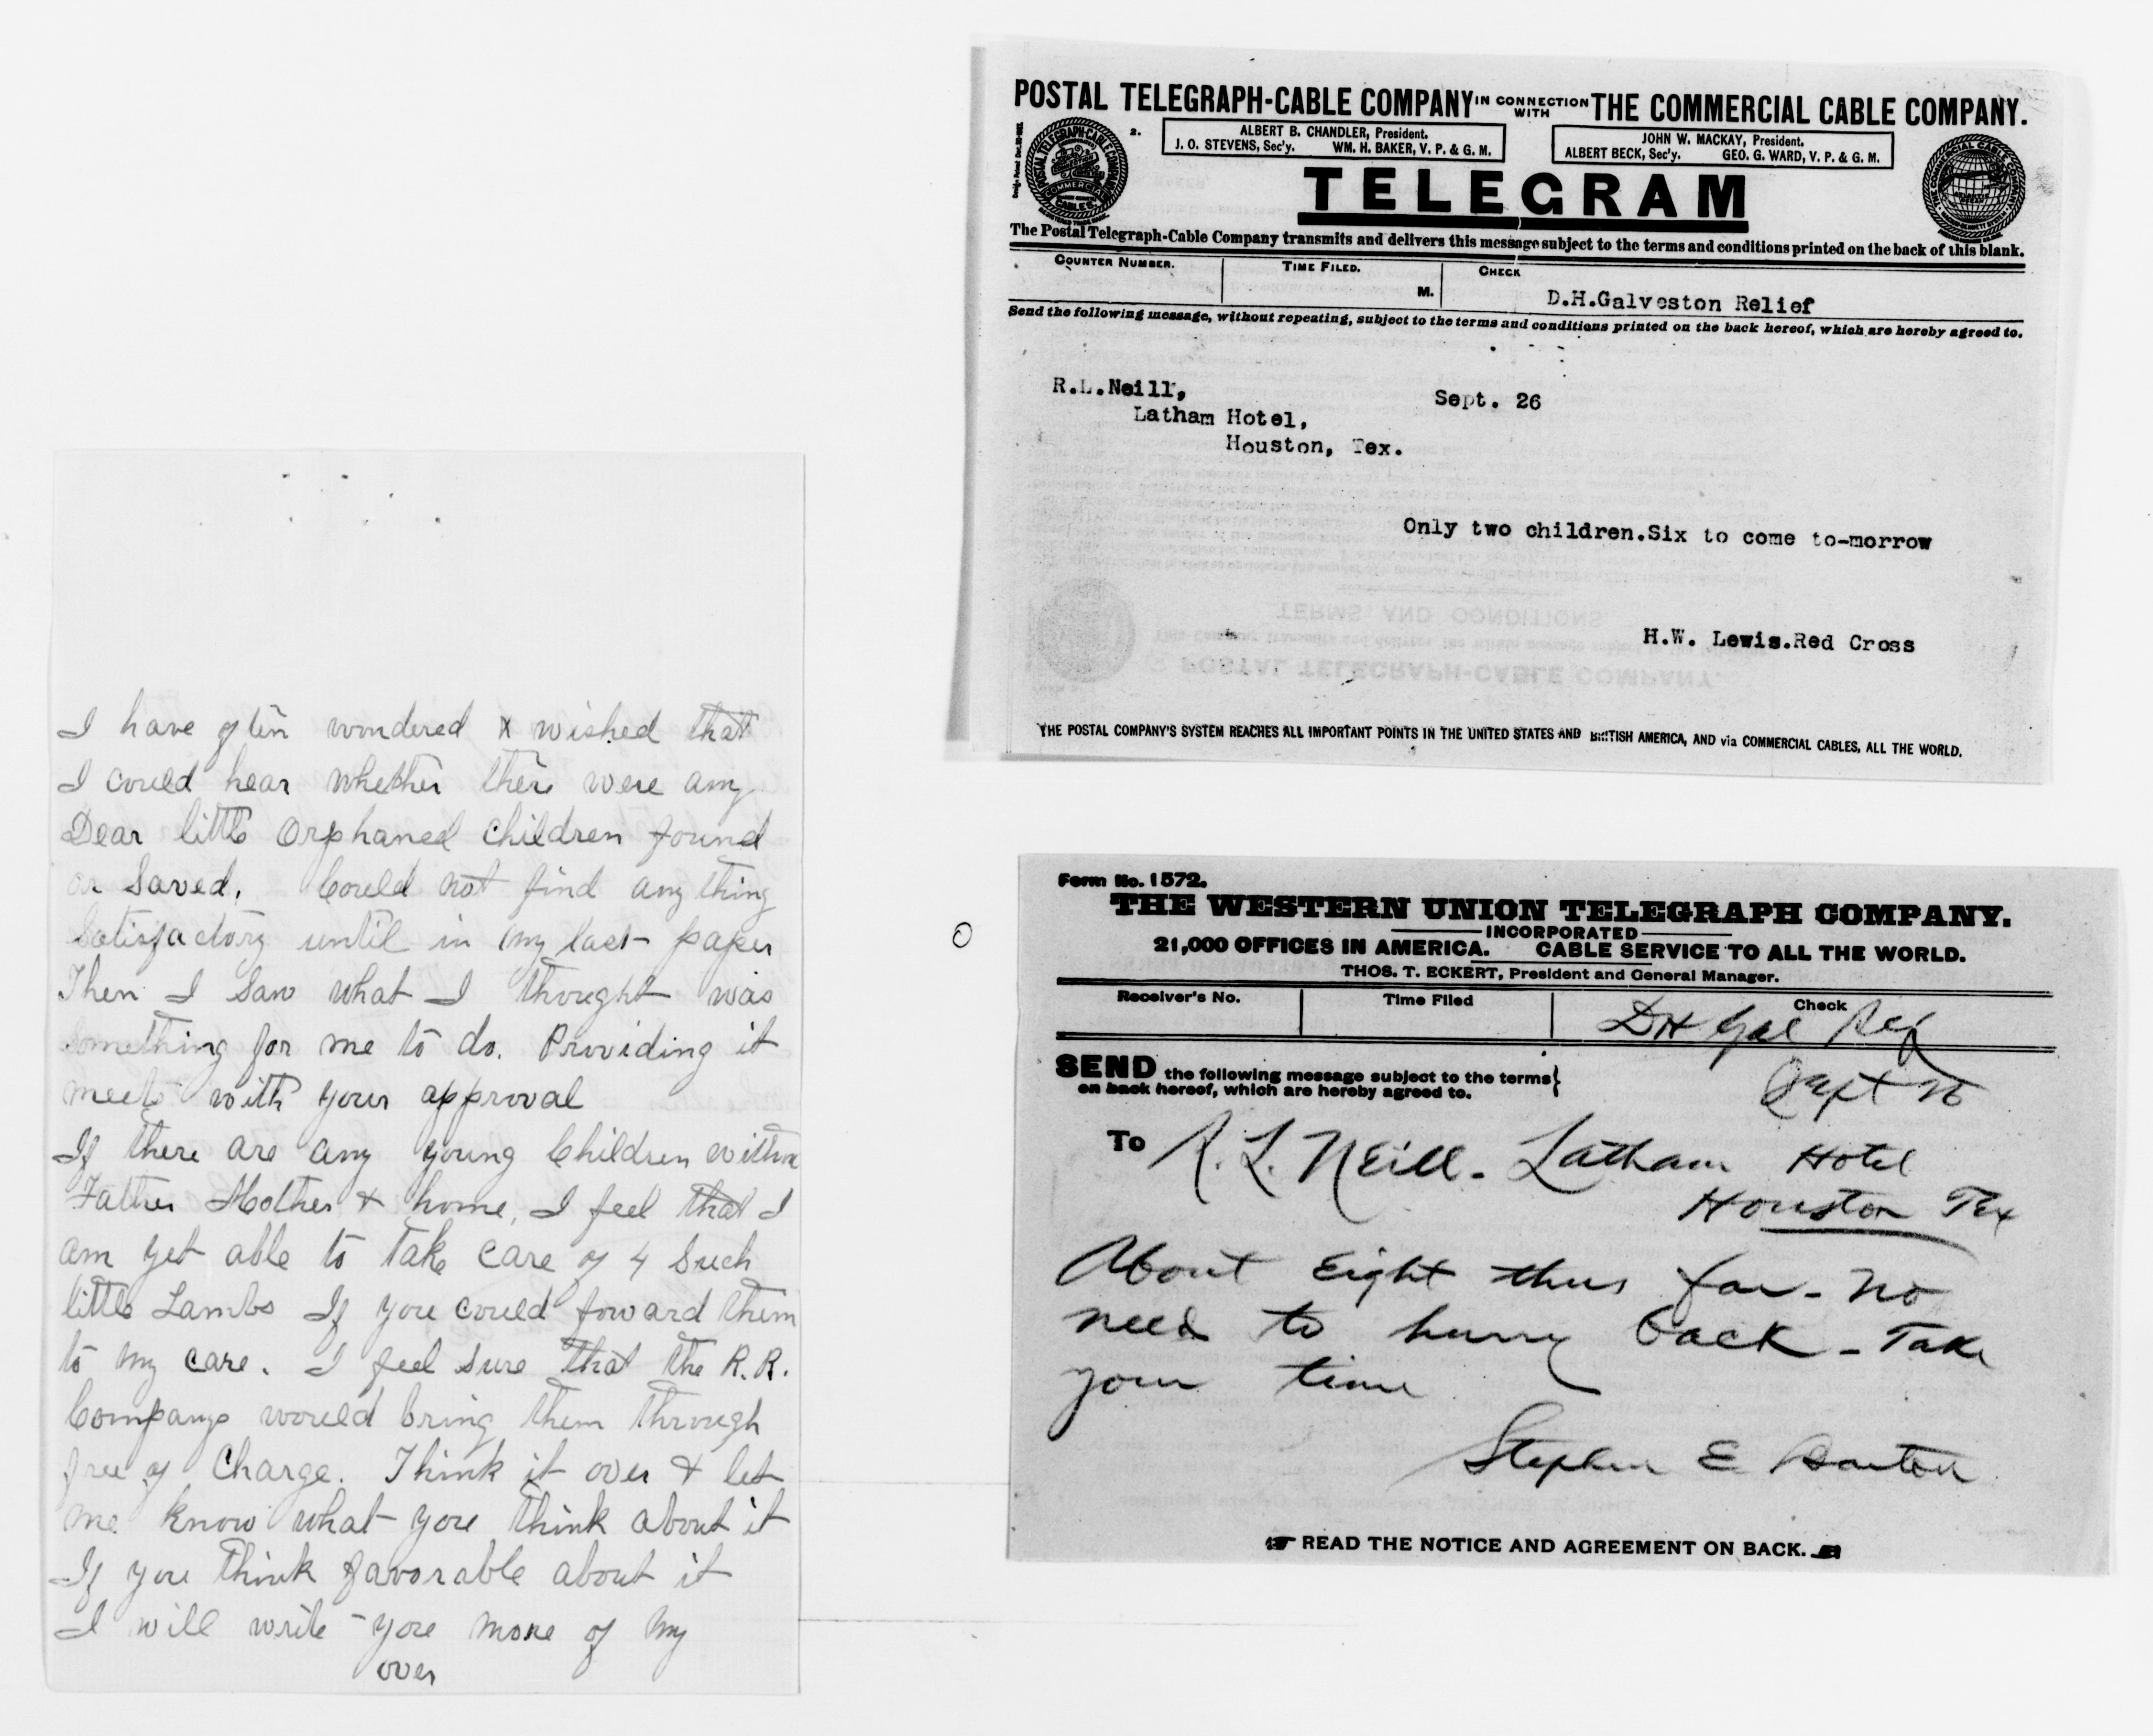 I have often wondered & wished that
I could hear whether there were any
Dear little Orphaned Children found
or Saved. Could not find any thing
Satisfactory until in my last paper
Then I saw what I thought was
something for me to do. Providing it
meets with your approval
If there are any young Children without
Father Mother & home, I feel that I
am yet able to take care of 4 such
little Lambs If you could foward them
to my care. I feel sure that the R.R.
Companys would bring them through
free of Charge. Think it over & let
me know what you think about it
If you think favorable about it
I will write you more of my
over
POSTAL TELEGRAPH-CABLE COMPANY IN CONNECTION WITH THE COMMERCIAL CABLE COMPANY.
2.
ALBERT B. CHANDLER, President.
J. O. STEVENS, Sec'y. WM. H. BAKER, V. P. & G. M.
JOHN W. MACKAY, President.
ALBERT BECK, Sec'y. GEO. G. WARD, V. P. & G. M.
TELEGRAM
The Postal Telegraph-Cable Company transmits and delivers this message subject to the terms and conditions printed on the back of this blank.
COUNTER NUMBER. TIME FILED. CHECK
M.
D.H.Galveston Relief
Send the following message, without repeating, subject to the terms and conditions printed on the back hereof, which are hereby agreed to.
R.L.Neill, Sept. 26
Latham Hotel,
Houston, Tex.
Only two children.Six to come to-morrow
H.W. Lewis.Red Cross
THE POSTAL COMPANY'S SYSTEM REACHES ALL IMPORTANT POINTS IN THE UNITED STATES AND BRITISH AMERICA, AND via COMMERCIAL CABLES, ALL THE WORLD.
Form No. 1572.
THE WESTERN UNION TELEGRAPH COMPANY.
INCORPORATED
21,000 OFFICES IN AMERICA. CABLE SERVICE TO ALL THE WORLD.
THOS. T. ECKERT, President and General Manager.
Receiver's No. Time Filed Check
DH Gal
SEND the following message subject to the terms
on back hereof, which are hereby agreed to.
Sept 26
To R. L. Neill - Latham Hotel
Houston Tex
About Eight thus far - No
need to hurry back - Take
your time
Stephen E Barton
READ THE NOTICE AND AGREEMENT ON BACK.